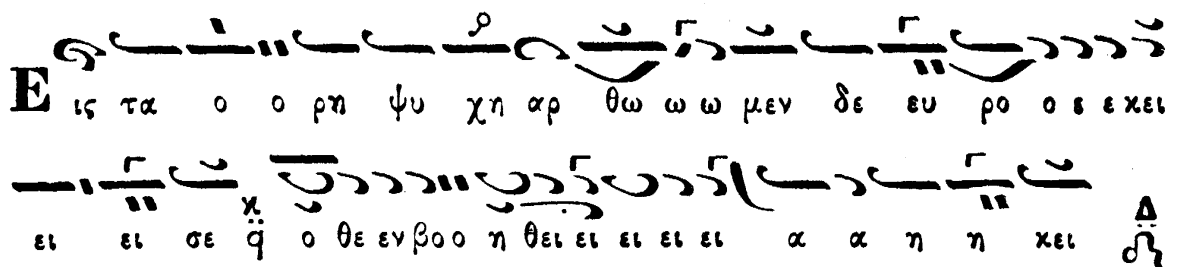 Εις τα ο ο ρη ψυ χη αρ θω ω ω μεν δε ευ ρο ο ε ε κει
ει ει σε κ q ο θε εν βο ο η θει ει ει ει ει α α η η κει Δ